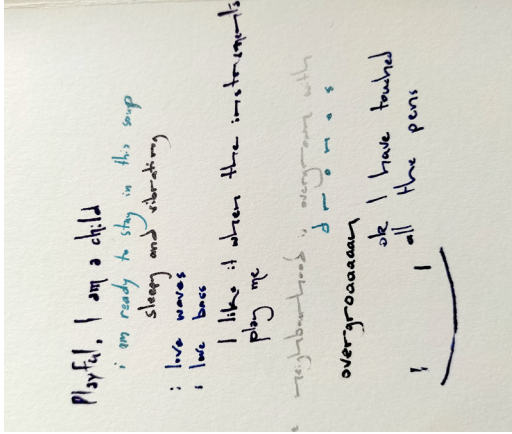 Playful, I am a child
i am ready to stay in this soup
sleepy and vibrating
i love waves
i love bass
I like it when the instruments
play me
neighbourhood is overgrown with
drones
overgroaaaaan
ok I have touched
all the pens